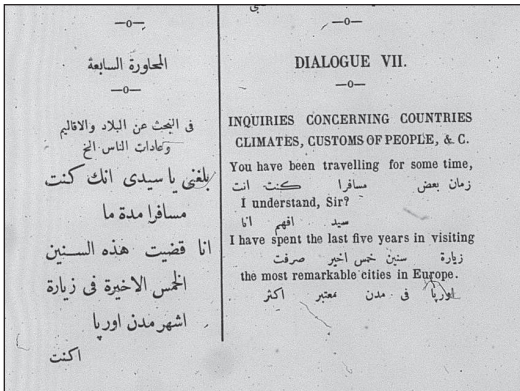 —o—
المحاورة السابعة
—o—
فى البحث عن البلاد والاقاليم
وعادات الناس الخ
بلغنى يا سيدى انك كنت
مسافرا مدة ما
انا قضيت هذه السنين
الخمس الاخيرة فى زيارة
اشهر مدن اورپا
اكنت
—o—
DIALOGUE VII.
—o—
INQUIRIES CONCERNING COUNTRIES
CLIMATES, CUSTOMS OF PEOPLE, & C.
You have been travelling for some time,
زمان بعض مسافرا كنت انت
I understand, Sir?
سيد افهم انا
I have spent the last five years in visiting
زيارة سنين خمس اخير صرفت
the most remarkable cities in Europe.
اورپا فى مدن معتبر اكثر